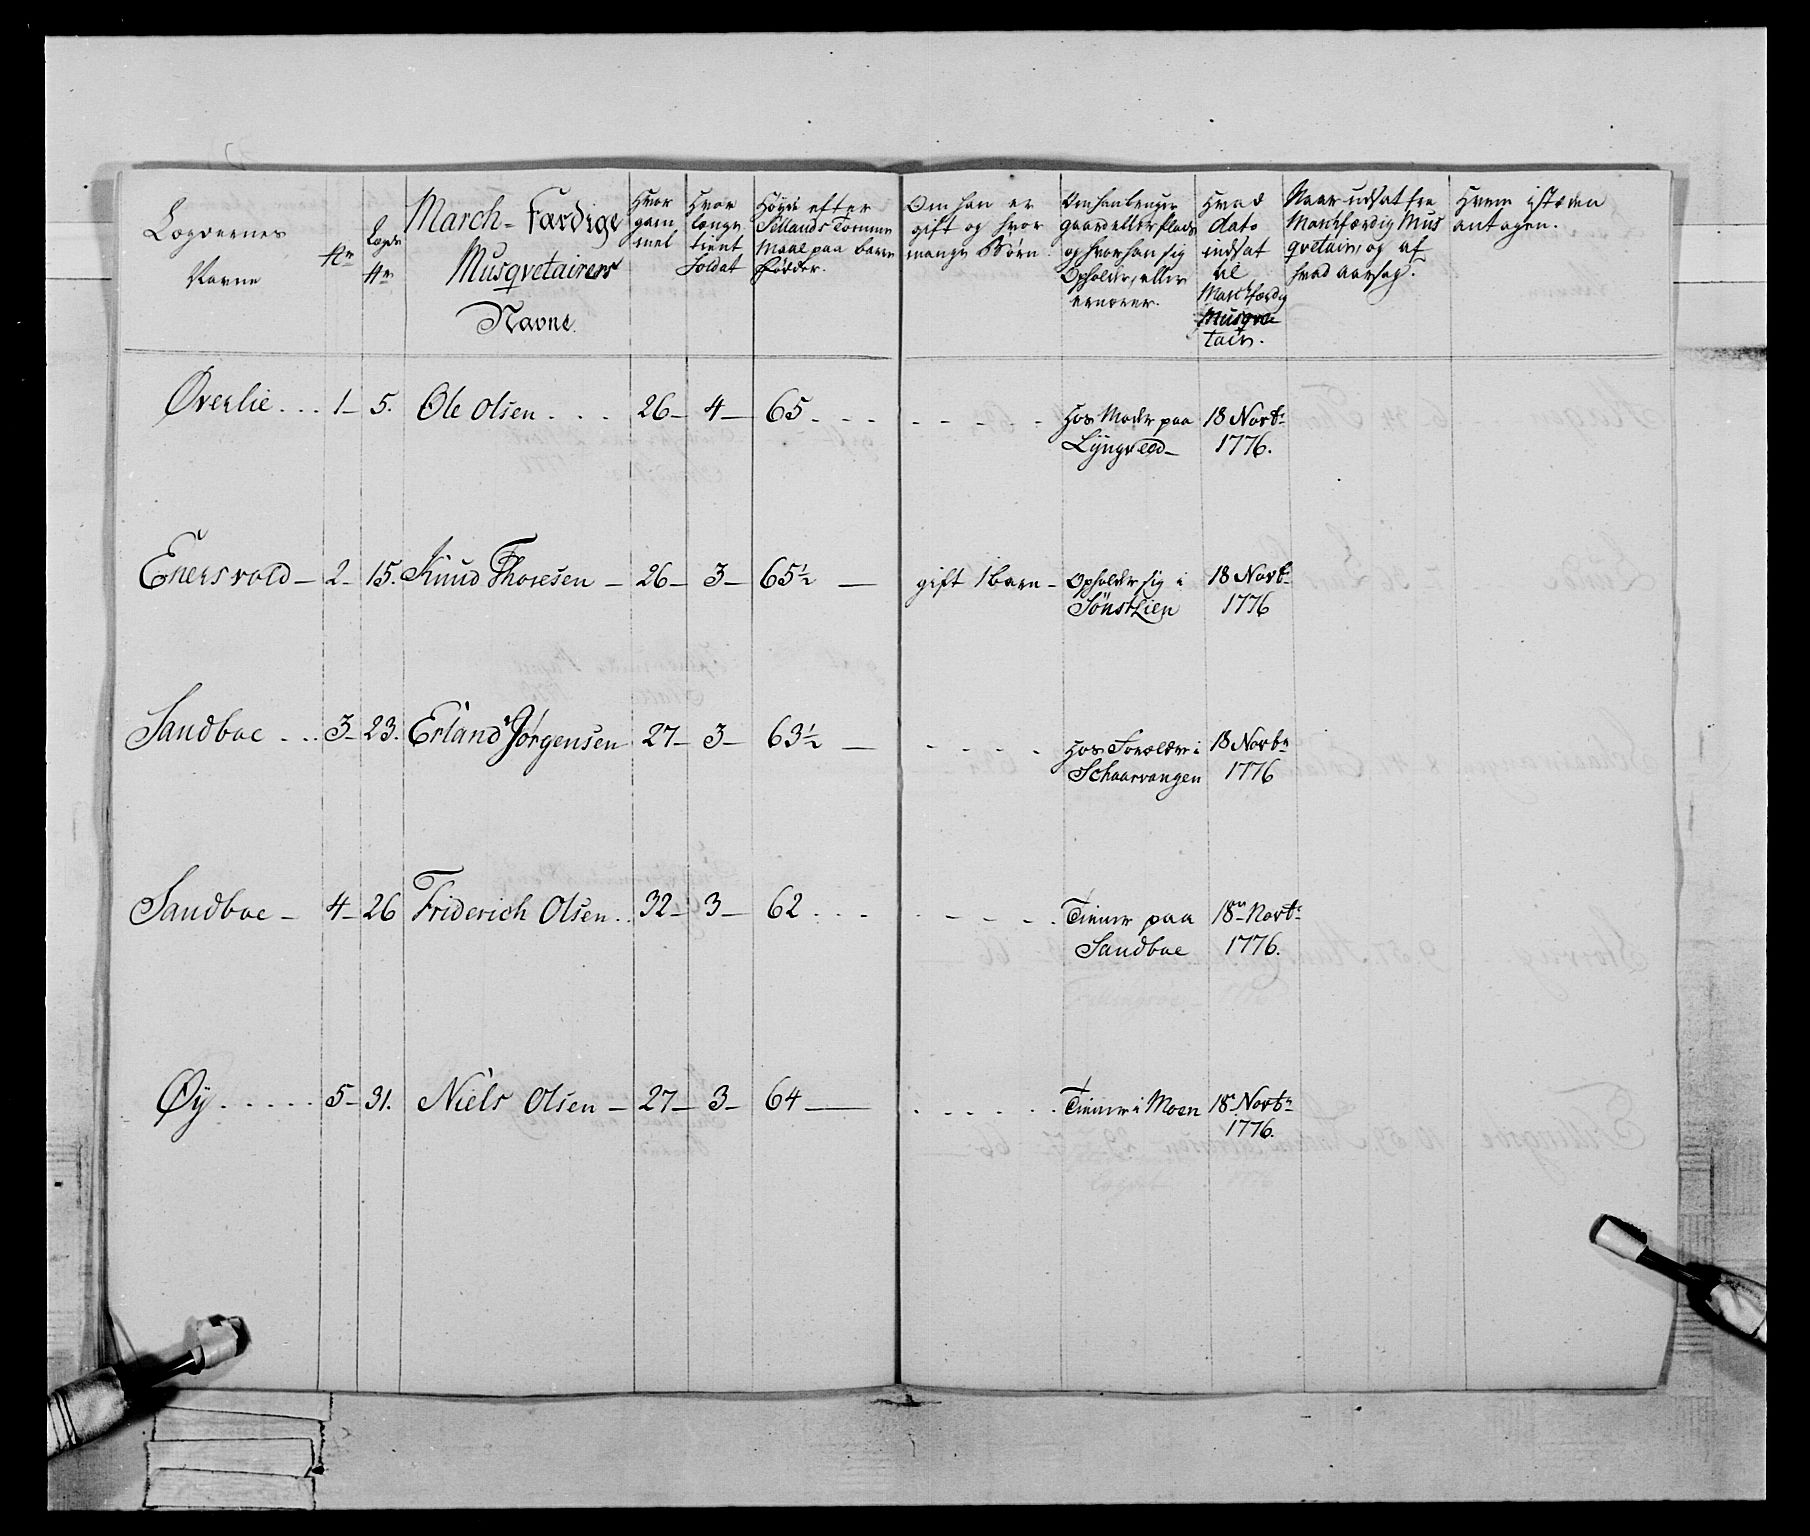 Lægdernes
Navne
Nr
Lægds
Nr
March-Færdige
Musqvetairers
Navne.
Hvor
gam
mel
Hvor
længe
tient
Soldat
Høyde efter
Sellands Tomme
Maal paa bare
Fødder.
Om han er
gift og hvor
mange Børn
Om han bruger
gaard eller plads
og hvor han sig
Opholder, eller
ernærer.
Hvad
dato
indsat
til
Marchfærdig
Musqve
tair.
Naar udsat fra
Marchfærdig Mus
qvetair, og af
hvad aarsag.
Hvem i stæden
antagen.
Øverlie . . . 1 - 5. Ole Olsen . . . 26 - 4 - 65 . - - - - - - - Hos Moder paa 18 Novbr
Lÿngveed - 1776.
Enersvold - 2 - 15. Knud Thoresen - 26 - 3 - 65½ - gift 1 barn - Opholder sig i 18 Novbr
Sönstlien 1776
Sandboe . . . 3 - 23. Erland Jörgensen 27 - 3 - 63½ - - - - - Hos Forældre i 18 Novbr
Schaarvangen 1776
Sandboe - 4 - 26 Friderich Olsen . . 32 - 3 - 62 . - - - - - - . Tiener paa 18de Novbr
Sandboe 1776.
Øÿ . . . . . 5 - 31. Niels Olsen - 27 - 3 - 64 - . - - - - . Tiener i Moen 18de Novbr
1776.